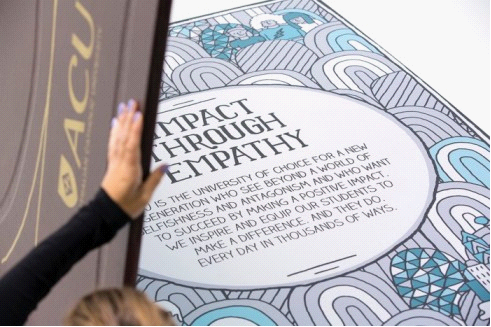 ACU
IMPACT
THROUGH
EMPATHY
IS THE UNIVERSITY OF CHOICE FOR A NEW
GENERATION WHO SEE BEYOND A WORLD OF
SELFISHNESS AND ANTAGONISM AND WHO WANT
TO SUCCEED BY MAKING A POSITIVE IMPACT.
WE INSPIRE AND EQUIP OUR STUDENTS TO
MAKE A DIFFERENCE. AND THEY DO.
EVERY DAY IN THOUSANDS OF WAYS.